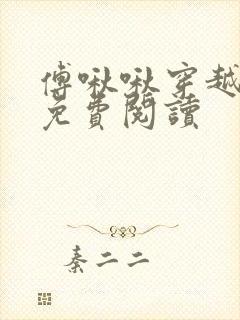 傅啾啾穿越
免費閱讀
秦二二